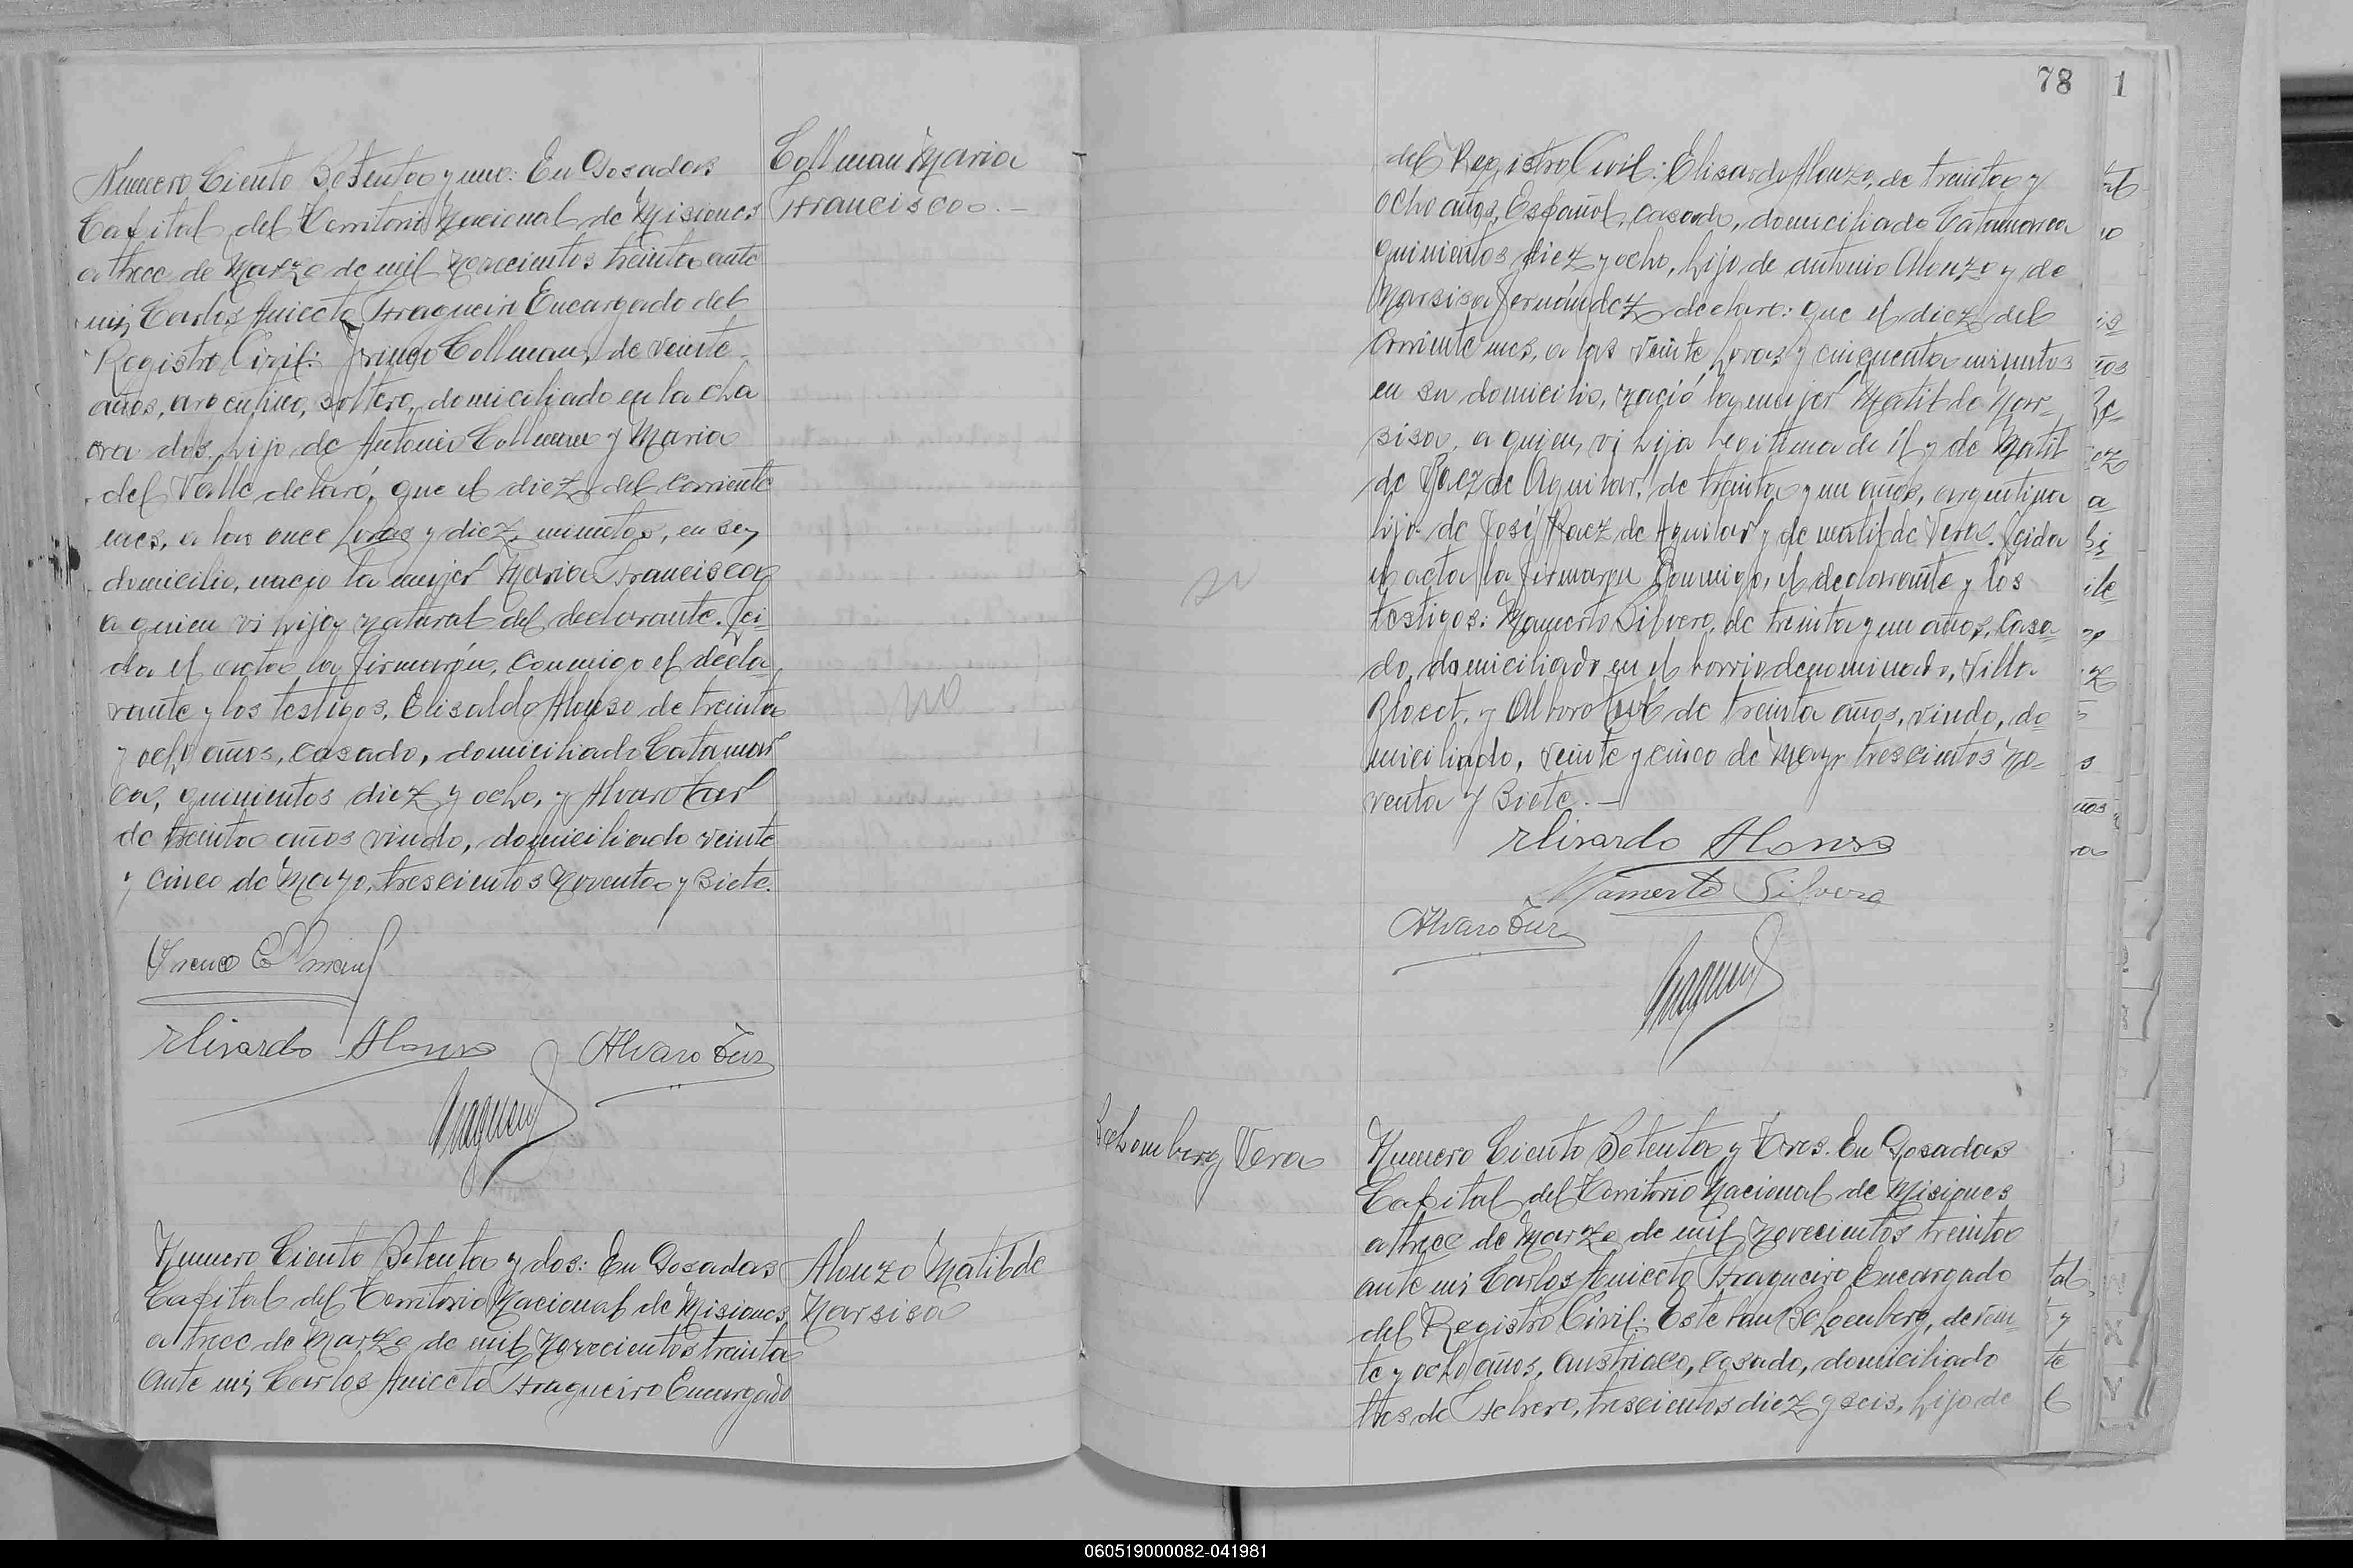 Numero Ciento Setenta y uno: En Posadas
Capital del Territorio Nacional de Misiones
a trece de Marzo de mil novecientos treinta ante
mi, Carlos Aniceto Fragueiro Encargado del
Registro Civil: Collman, de veinte
años, argentino, soltero, domiciliado en la cha
cra dos, hijo de Antonio Collman y Maria
del Valle declaró, que el diez del corriente
mes, a las once horas y diez minutos, en su
domicilio, nacio la mujer Maria Francisca
a quien vi hija natural del declarante. Lei-
da el acta la firmarón, conmigo el decla-
rante y los testigos, Elisaldo Alonso de treinta
y ocho años, casado, domiciliado Catamar
ca, quinientos diez y ocho, y Alvaro
de treinta años viudo, domiciliado veinte
y cinco de Mayo, trescientos noventa y siete.
Collman Maria
Francisca.-
no
Elisardo Alonso
Alvaro
Numero Ciento Setenta y dos: En Posadas
Capital del Territorio Nacional de Misiones,
a trece de Marzo de mil novecientos treinta
ante mi, Carlos Aniceto Fragueiro Encargado
Alonzo Matilde
Narsisa
78
1
del Registro Civil: Elisardo Alonzo, de treinta y
ocho años, Español, casado, domiciliado Catamarca
quinientos diez y ocho, hijo de Antonio Alonzo y de
Narsisa Fernández, declaro: que el diez del
corriente mes, a las veinte horas y cincuenta minutos
en su domicilio, nació la mujer Matilde Nar-
sisa, a quien vi hija legitima de él y de Matil
de Baez de Aguilar, de treinta y un años, argentina
hija de José Baez de Aguilar y de Matilde Vera. Leida
el acta la firmaron conmigo, el declarante y los
testigos: Mamerto Silvero, de treinta y un años, casa-
do, domiciliado en el barrio denominado, Villa
y Alvaro de treinta años, viudo, do-
miciliado, veinte y cinco de Mayo trescientos no-
venta y siete.-
Elisardo Alonso
Mamerto Silvero
Alvaro
Schomberg Vera
Numero Ciento Setenta y Tres. En Posadas
Capital del Territorio Nacional de Misiones
a trece de Marzo de mil novecientos treinta
ante mi Carlos Aniceto Fragueiro Encargado
del Registro Civil: Esteban, de vein-
te y ocho años, Austriaco, casado, domiciliado
tres de Febrero, trescientos diez y seis, hijo de
060519000082-041981